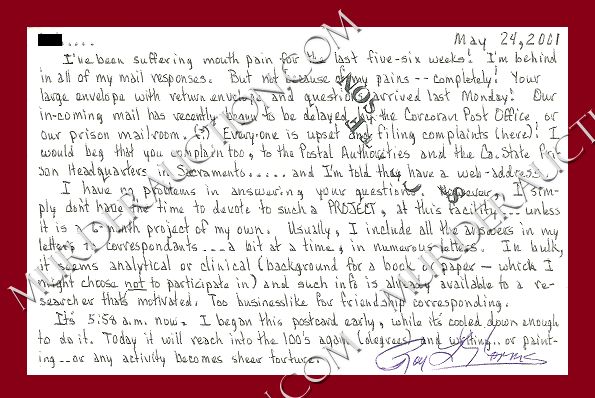 ..... May 24, 2001
I've been suffering mouth pain for the last five-six weeks! I'm behind
in all of my mail responses. But not because of my pains -- completely! Your
large envelope with return envelope and questions arrived last Monday! Our
in-coming mail has recently begun to be delayed by the Corcoran Post Office, or
our prison mailroom. (?) Everyone is upset and filing complaints (here)! I
would beg that you complain too, to the Postal Authorities and the Ca. State Pri-
son Headquarters in Sacramento..... and I'm told they have a web-address!
I have no problems in answering your questions. However, I sim-
ply don't have the time to devote to such a PROJECT, at this facility... unless
it is a 6-month project of my own. Usually, I include all the answers in my
letters to correspondants... a bit at a time, in numerous letters. In bulk,
it seems analytical or clinical (background for a book or paper — which I
might choose not to participate in) and such info is already available to a re-
searcher that's motivated. Too businesslike for friendship corresponding.
It's 5:58 a.m. now. I began this postcard early, while it's cooled down enough
to do it. Today it will reach into the 100's again (degrees) and writing.. or paint-
ing... or any activity becomes sheer torture.
MURDERAUCTION.COM